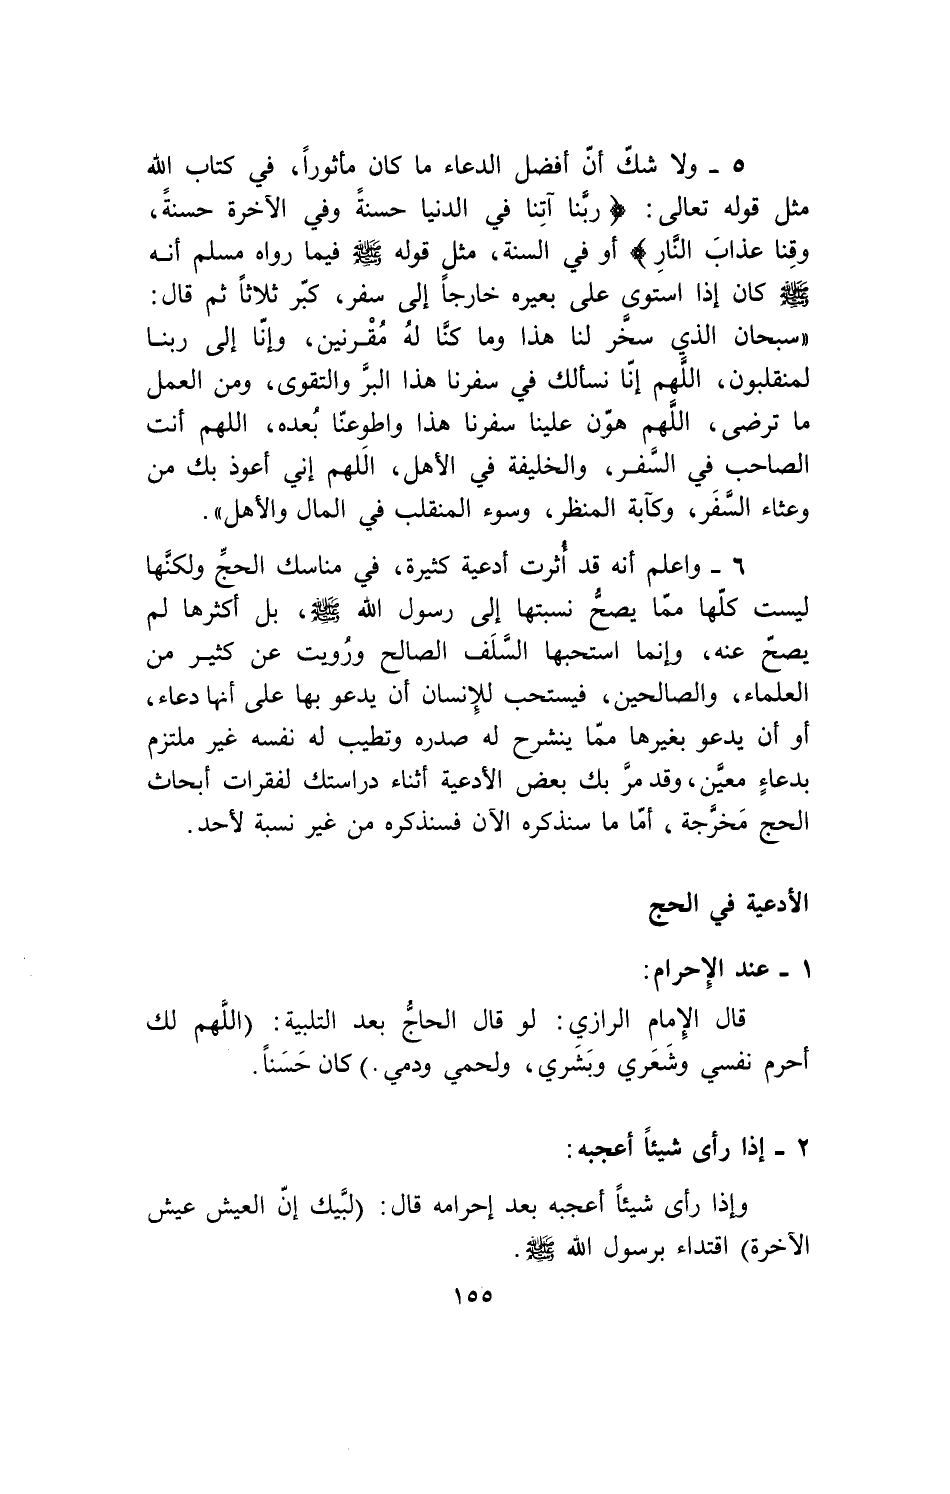 ٥ ـ ولا شكّ أنّ أفضل الدعاء ما كان مأثوراً، في كتاب الله
مثل قوله تعالى: ﴿ ربَّنا آتِنا في الدنيا حسنةً وفي الآخرة حسنةً،
وقِنا عذابَ النَّارِ ﴾ أو في السنة، مثل قوله ﷺ فيما رواه مسلم أنه
ﷺ كان إذا استوى على بعيره خارجاً إلى سفر، كبّر ثلاثاً ثم قال:
«سبحان الذي سخَّر لنا هذا وما كنَّا لهُ مُقْرنين، وإنّا إلى ربنا
لمنقلبون، اللَّهم إنّا نسألك في سفرنا هذا البرَّ والتقوى، ومن العمل
ما ترضى، اللَّهم هوّن علينا سفرنا هذا واطوعنّا بُعده، اللهم أنت
الصاحب في السَّفر، والخليفة في الأهل، اللَهم إني أعوذ بك من
وعثاء السَّفَر، وكآبة المنظر، وسوء المنقلب في المال والأهل».
٦ ـ واعلم أنه قد أُثرت أدعية كثيرة، في مناسك الحجِّ ولكنَّها
ليست كلّها ممّا يصحُّ نسبتها إلى رسول الله ﷺ، بل أكثرها لم
يصحّ عنه، وإنما استحبها السَّلَف الصالح ورُويت عن كثير من
العلماء، والصالحين، فيستحب للإنسان أن يدعو بها على أنها دعاء،
أو أن يدعو بغيرها ممّا ينشرح له صدره وتطيب له نفسه غير ملتزم
بدعاءٍ معيَّن، وقد مرَّ بك بعض الأدعية أثناء دراستك لفقرات أبحاث
الحج مَخرَّجة، أمّا ما سنذكره الآن فسنذكره من غير نسبة لأحد.
الأدعية في الحج
١ ـ عند الإحرام:
قال الإمام الرازي: لو قال الحاجُّ بعد التلبية: (اللَّهم لك
أحرم نفسي وشَعَري وبَشَري، ولحمي ودمي.) كان حَسَناً.
٢ ـ إذا رأى شيئاً أعجبه:
وإذا رأى شيئاً أعجبه بعد إحرامه قال: (لبَّيك إنّ العيش عيش
الآخرة) اقتداء برسول الله ﷺ.
١٥٥